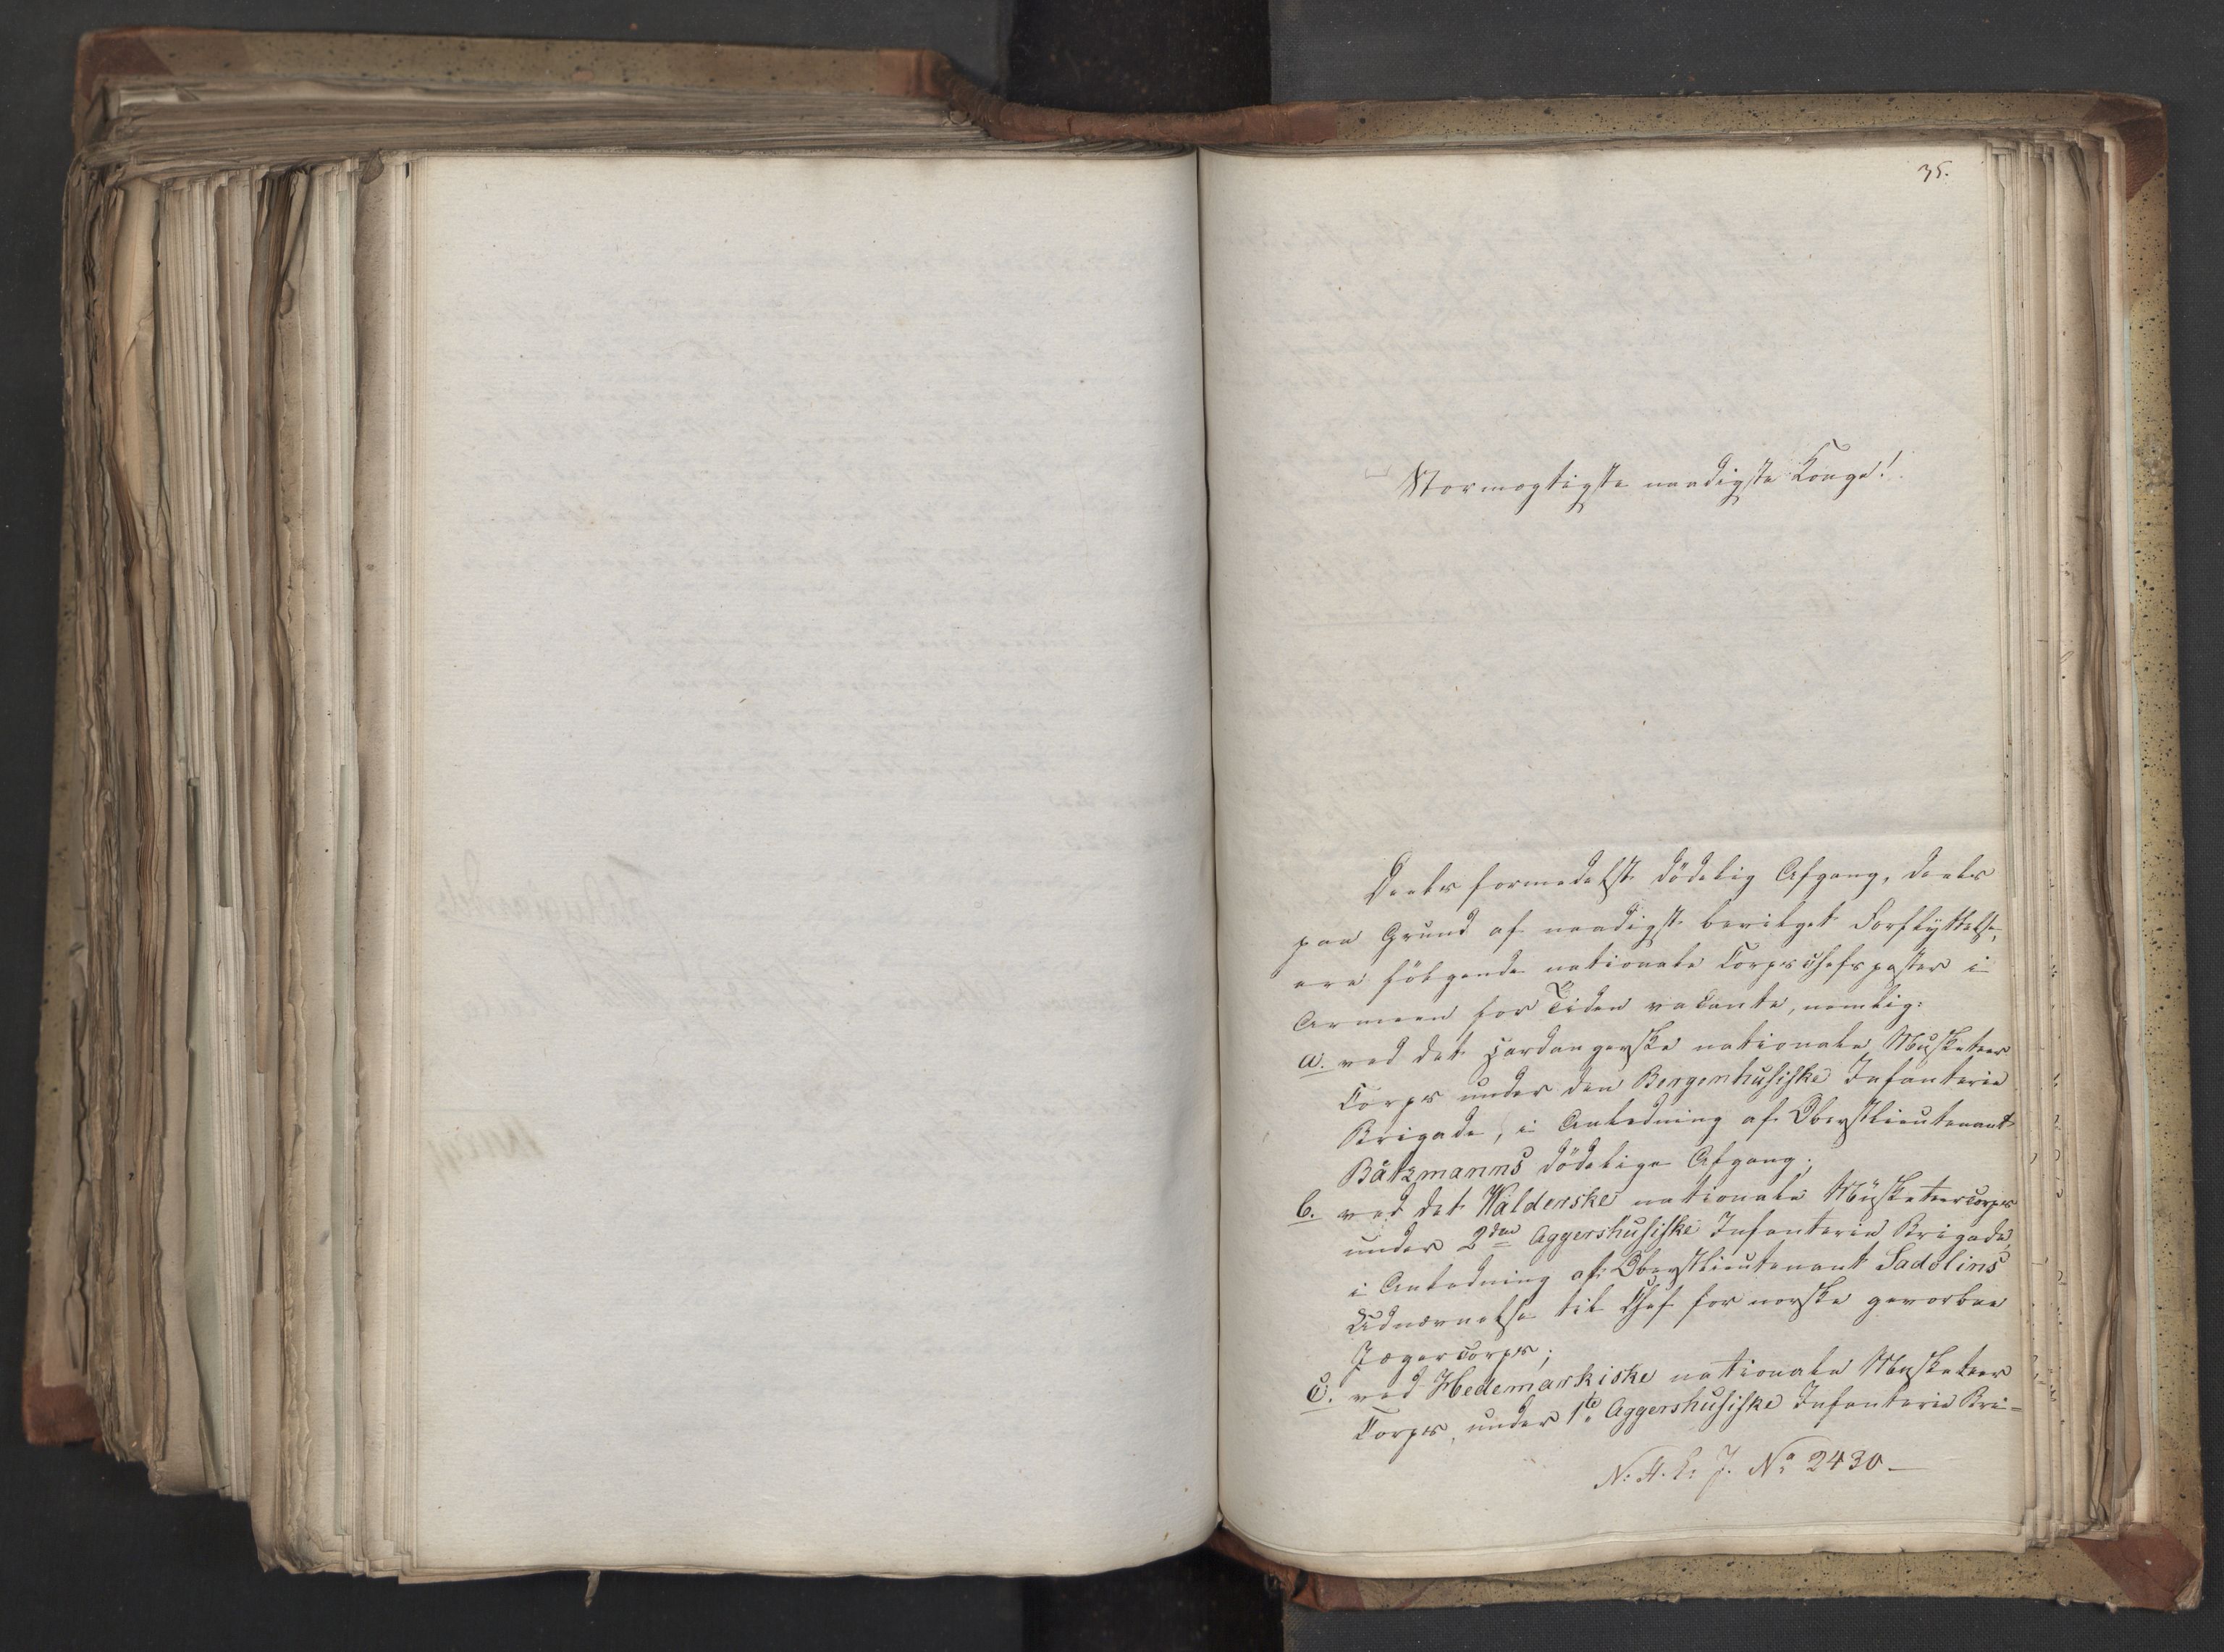 35.
Stormægtigste naadigste Konge!
Deels formedelst dödelig Afgang, deels
paa Grund af naadigst bevilget Forflyttelse,
ere fölgende nationale Corpschefsposter i
Armeen for Tiden vacante, nemlig:
a. ved det Hardangerske nationale Musketeer
Corps under den Bergenhusiske Infanterie
Brigade, i Anledning af Oberstlieutenant
Bätzmanns dödelige Afgang;
b. ved det Walderske nationale Musketeercorps
under 2den Aggershusiske Infanterie Brigade,
i Anledning af Oberstlieutenant Sadolins
Udnævnelse til Chef for norske gevorbne
Jægercorps;
c. ved Hedemarkiske nationale Musketeer
Corps, under 1te Aggershusiske Infanterie Bri=
N: A. C: J. No 2430.